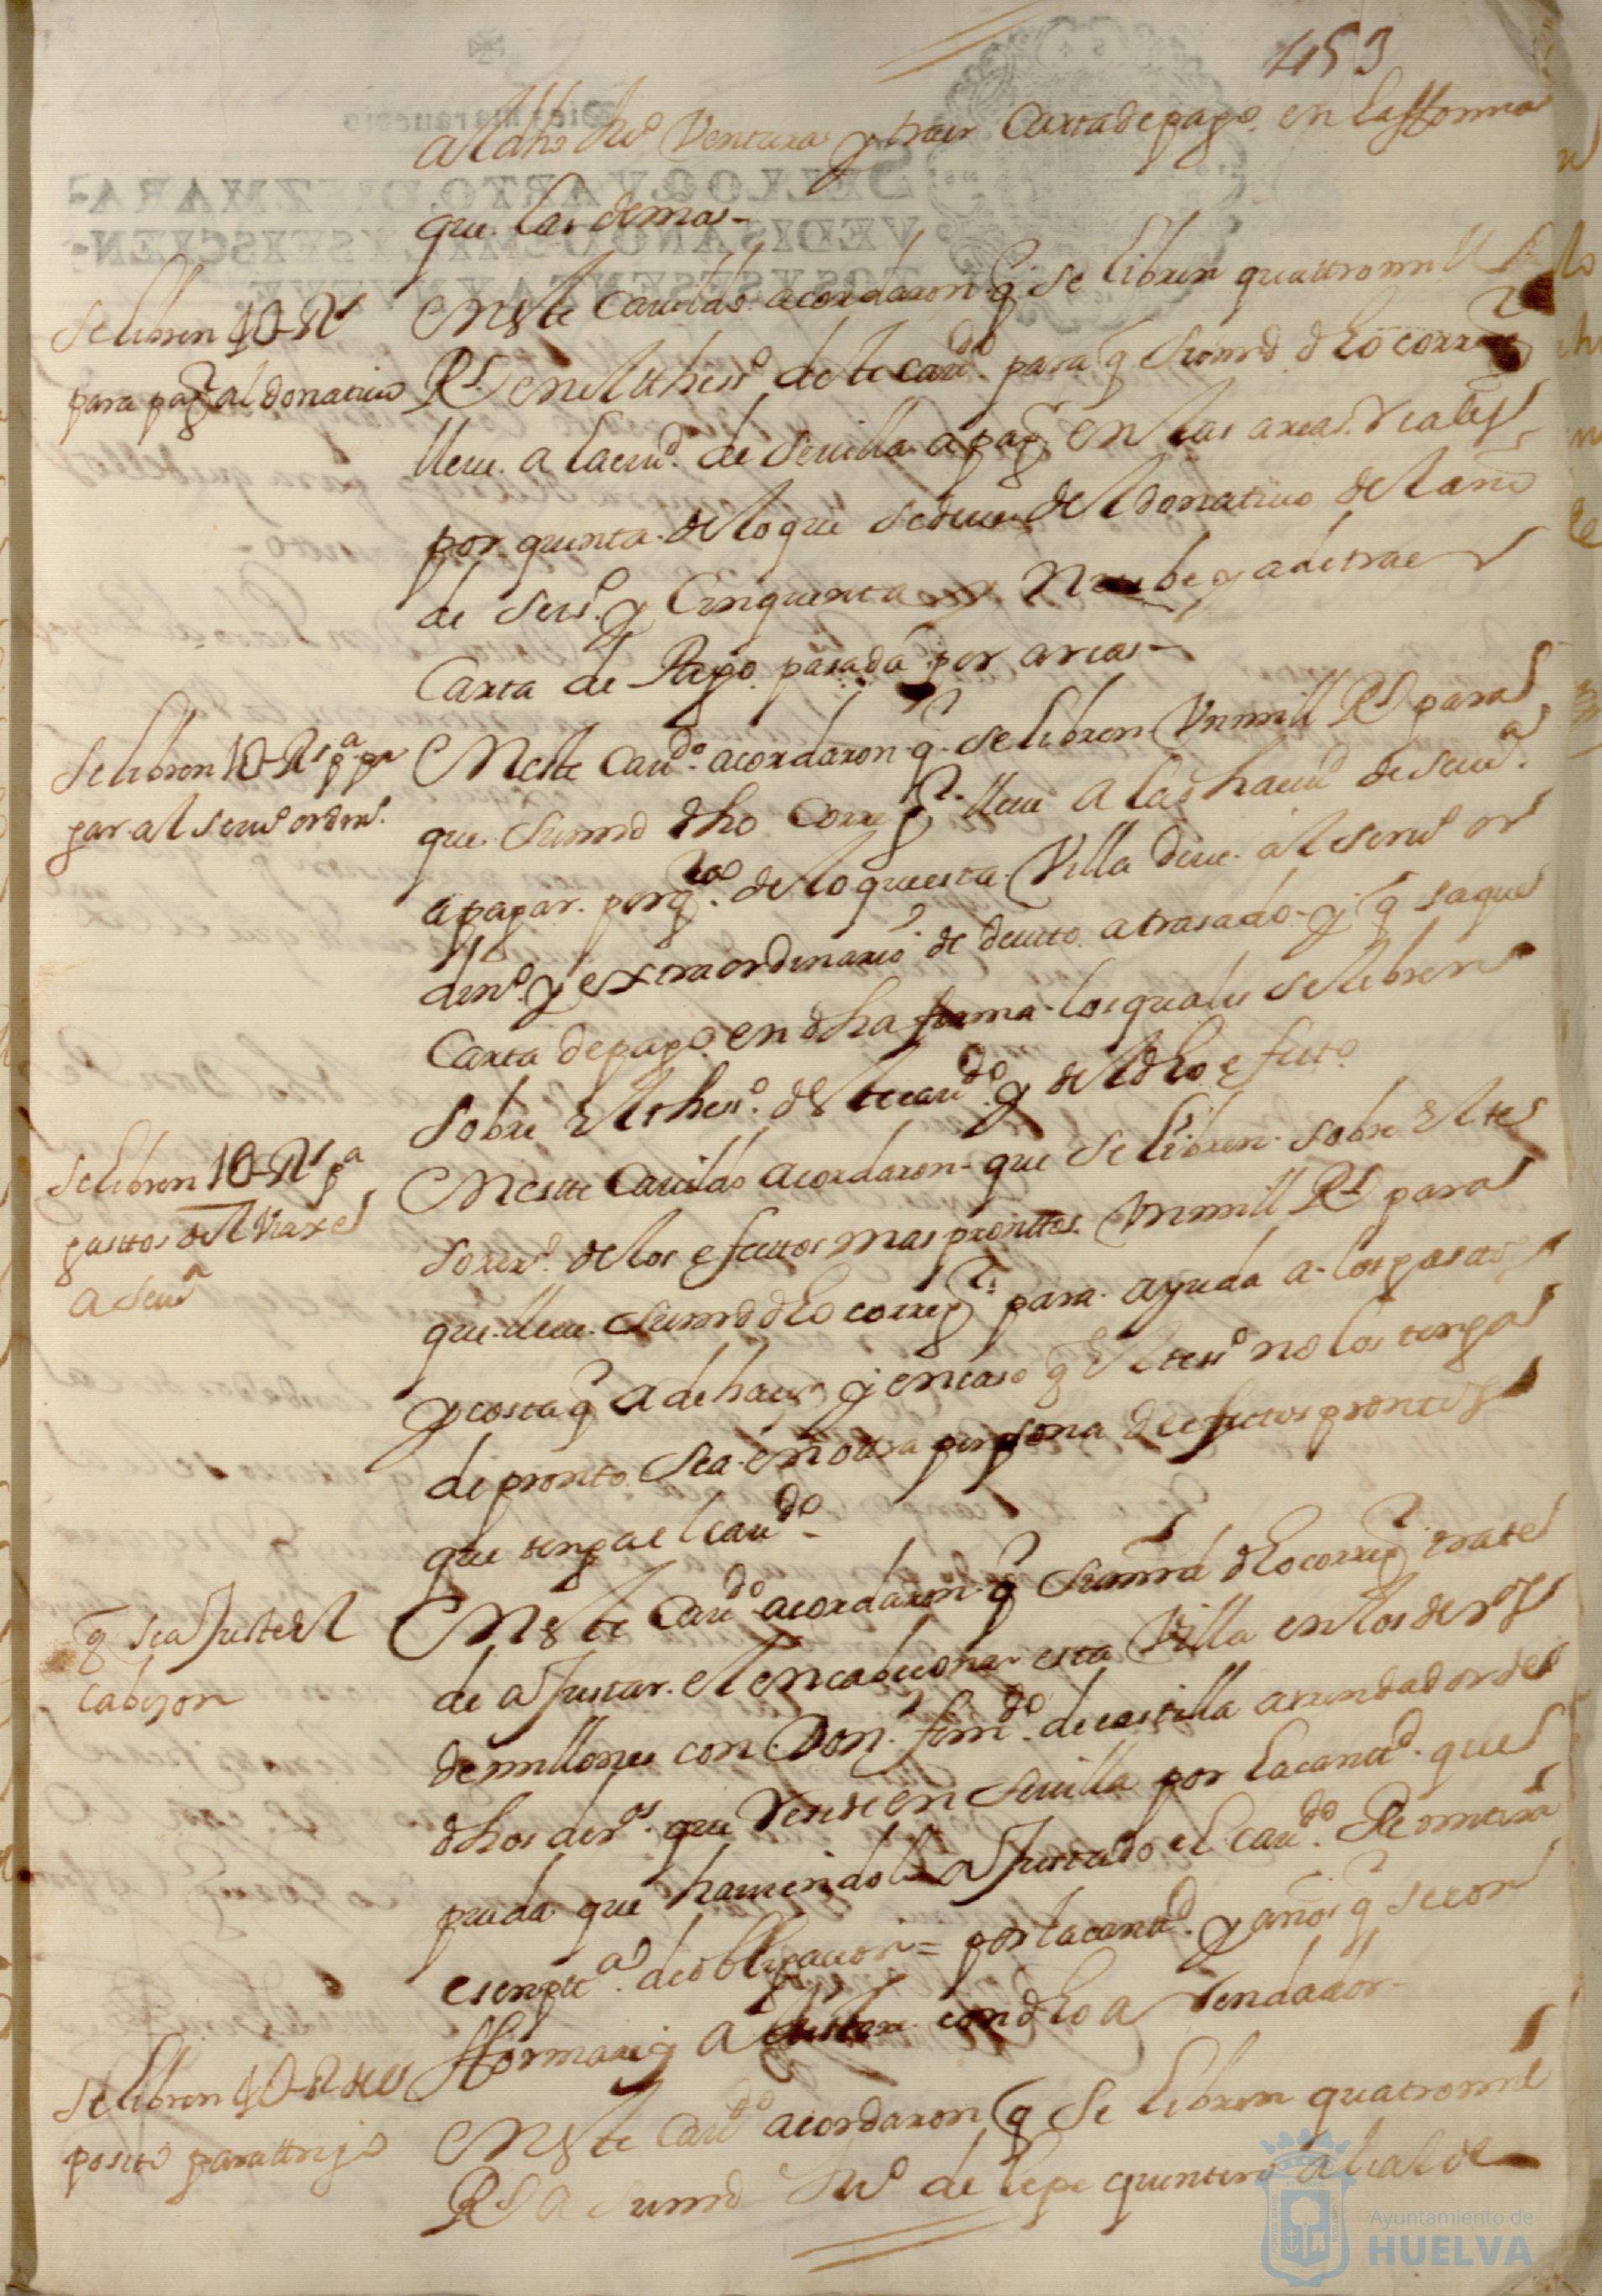 453
al dho Juº Ventura y traer Carta de pago en la fforma
que las demas
Se libren 4U Rs
para pagr al donativo
En este Cavildo acordaron q se libren quattro mill
Rs en el thessº deste cavdo para q su md dho corregr
lleve a la ciud de Sevilla a pagr en las arcas reales
por quenta de lo que se deve del donativo del año
de seisº y Cinquenta y Nuebe y a de traer
Carta de Pago pasada por arcas
Se libren 1U Rs pª pa
gar al servº ordinº
En este cavdo acordaron q se libren Un mill Rs para
que su md dho corregr lleve a la dha ciud de Sevª
a pagar por qta de lo que esta Villa deve al servº or
dinº y extraordinario de devito atrasado y q saque
Carta de pago en dha forma los quales se libren
sobre el thessº deste cavdo y del dho efecto
Se libren 1U Rs pª
gasttos del Viaxe
a Sevª
En este Cavildo acordaron que se libren sobre el te
sorerº de los efecttos mas pronttos Un mill Rs para
que lleve su md dho corregr para ayuda a los gastos
y costa q a de hacer y en caso q el tessº no los tenga
de pronto sea en otra persona de efectos prontos
que tenga el cavdo
q se aJuste el
cabezon
En este Cavdo acordaron q su md dho corregr trate
de aJustar el encabeconar esta Villa en los derºs
de millones con Don ferndo de castilla arrendador de
dhos derºs que reside en Sevilla por la cantd que
pueda que haviendolo aJustado el cavdo Remitira
escriptª de obligacion = por la cantd y años q se con
fformare y aJustare con dho arrendador
Se libren 4U Rs del
posito para ttrigo
En este Cavdo acordaron q se libren quatro mil
Rs a su md Juº de lepe quintero alcalde
Ayuntamiento de
HUELVA